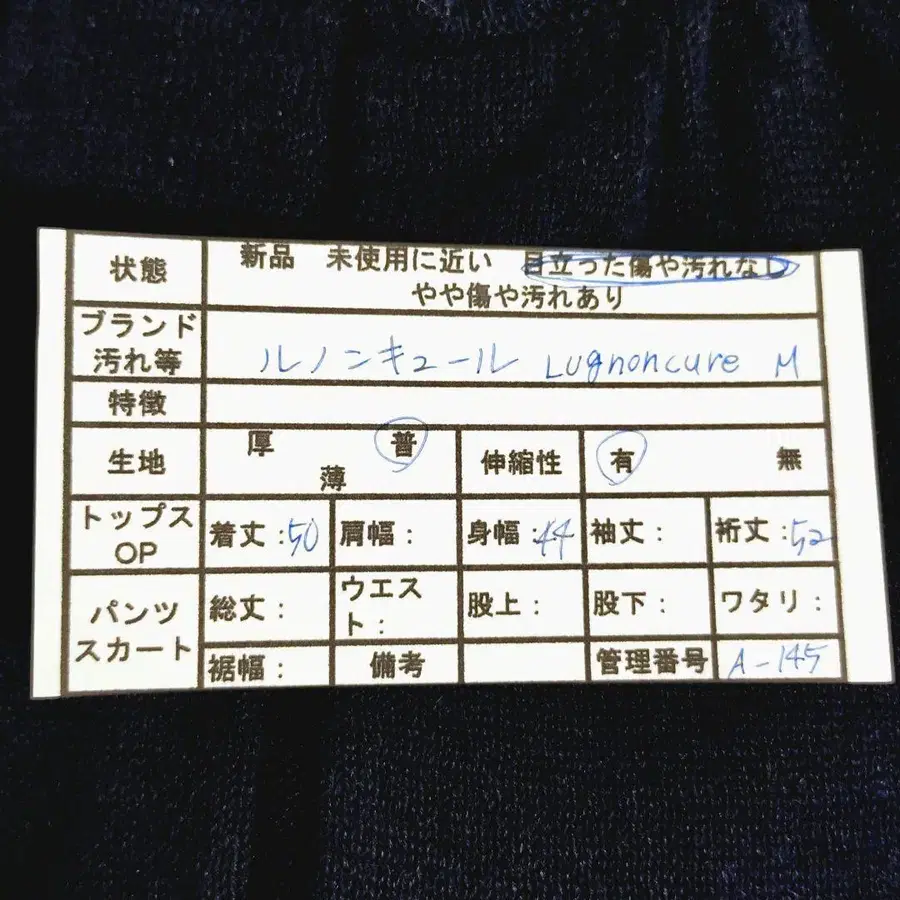 状態 新品 未使用に近い 目立った傷や汚れなし
やや傷や汚れあり
ブランド
汚れ等 ルノンキュール Lugnoncure M
特徴
生地 厚 普 薄 伸縮性 有 無
トップス
OP 着丈:50 肩幅: 身幅:44 袖丈: 裄丈:52
パンツ
スカート 総丈: ウエス
ト: 股上: 股下: ワタリ:
裾幅: 備考 管理番号 A-145